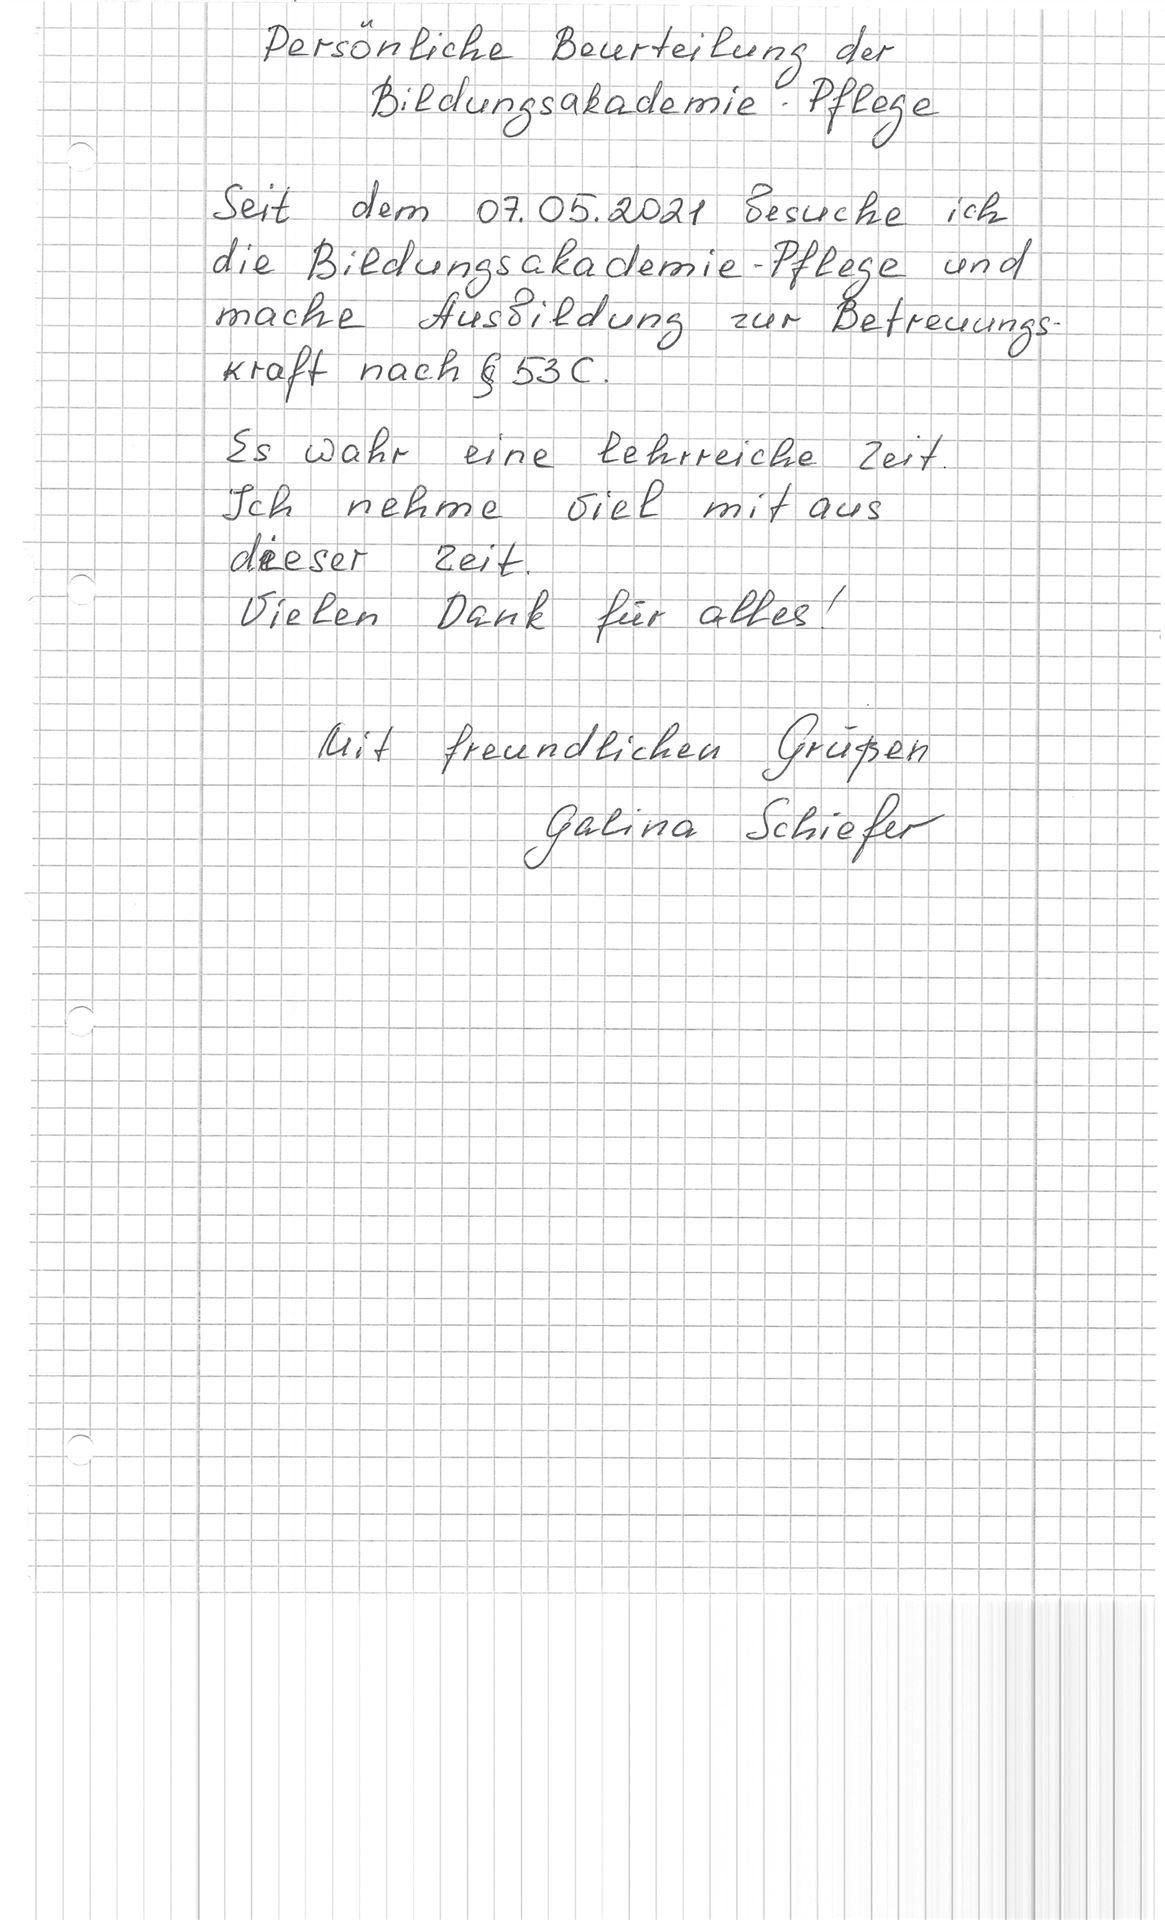 Persönliche Beurteilung der
Bildungsakademie-Pflege
Seit dem 07.05.2021 besuche ich
die Bildungsakademie-Pflege und
mache Ausbildung zur Betreuungs-
kraft nach § 53 C.
Es wahr eine lehrreiche Zeit.
Ich nehme viel mit aus
dieser Zeit.
Vielen Dank für alles!
Mit freundlichen Grüßen
Galina Schiefer